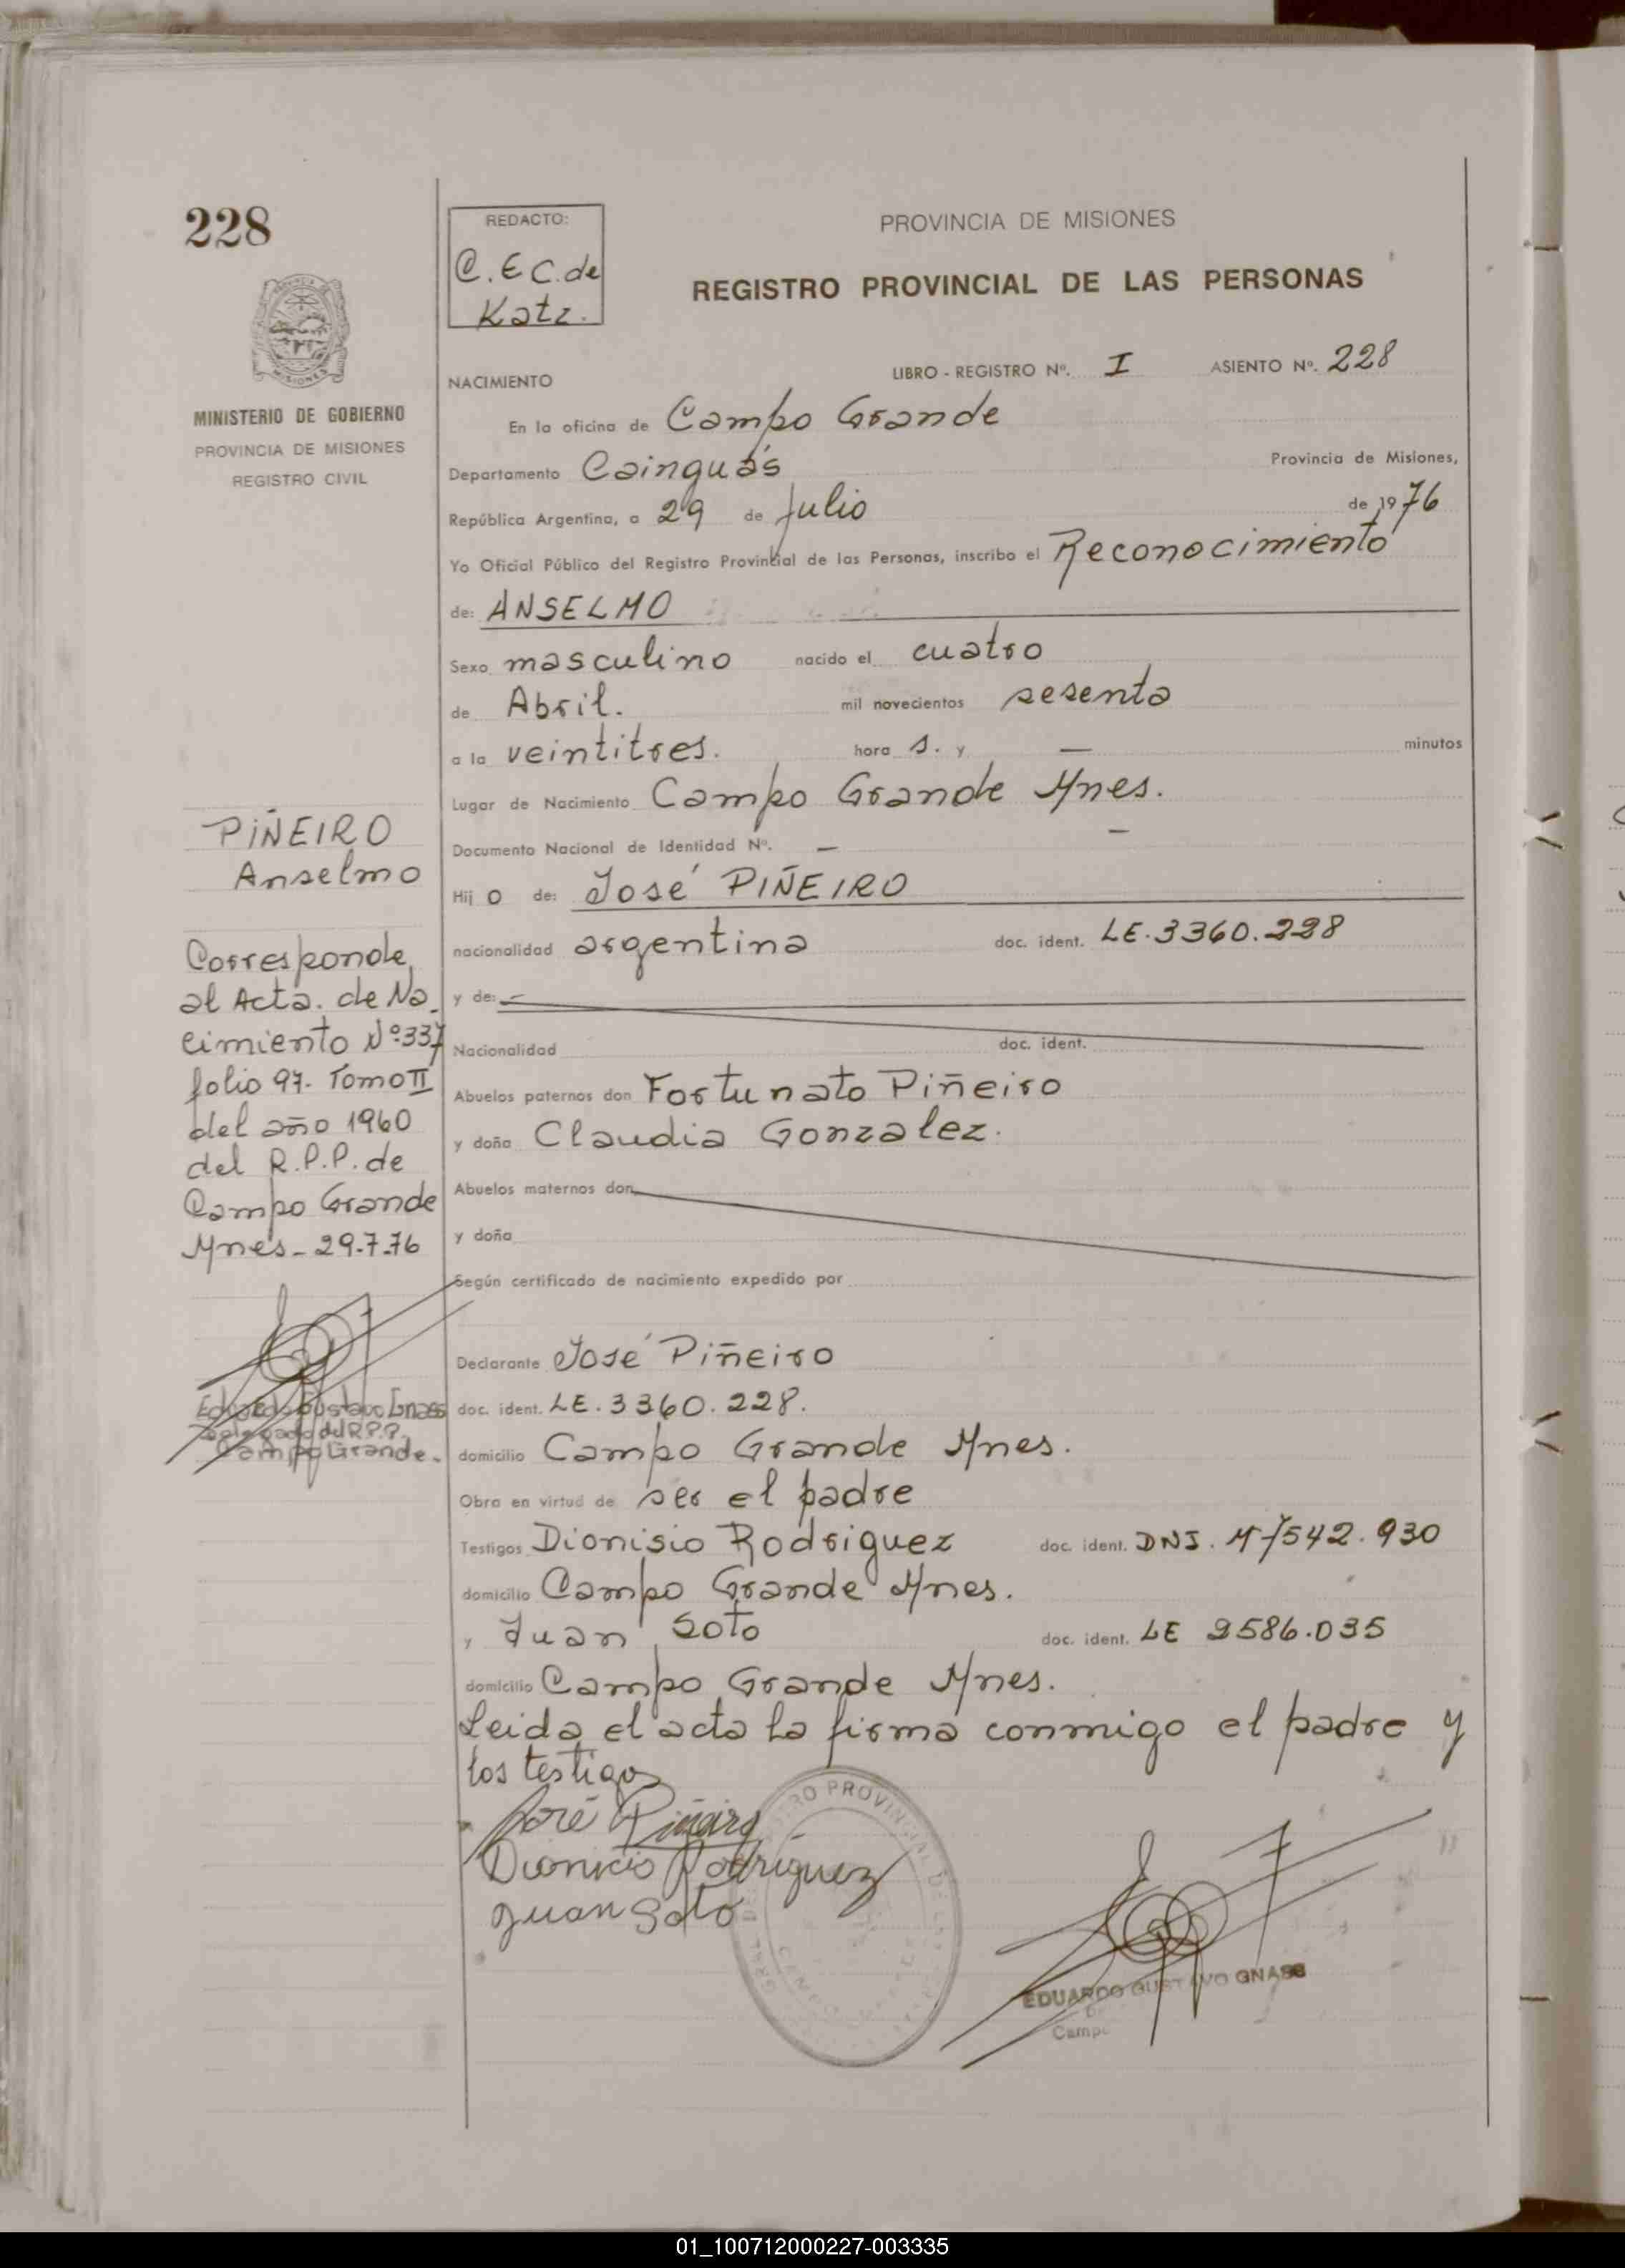 228
REDACTO:
C. E C. de
Katz.
PROVINCIA DE MISIONES
REGISTRO PROVINCIAL DE LAS PERSONAS
MISIONES
MINISTERIO DE GOBIERNO
PROVINCIA DE MISIONES
REGISTRO CIVIL
LIBRO - REGISTRO Nº. I ASIENTO Nº. 228
NACIMIENTO
En la oficina de Campo Grande
Departamento Cainguás Provincia de Misiones,
República Argentina, a 29 de Julio de 1976
Yo Oficial Público del Registro Provincial de las Personas, inscribo el Reconocimiento
de: ANSELMO
Sexo masculino nacido el cuatro
de Abril. mil novecientos sesenta
a la veintitres. hora s. y — minutos
Lugar de Nacimiento Campo Grande Mnes.
Documento Nacional de Identidad Nº. — —
Hij o de: José PIÑEIRO
nacionalidad argentina doc. ident. LE. 3360.228
y de: —
Nacionalidad doc. ident.
Abuelos paternos don Fortunato Piñeiro
y doña Claudia Gonzalez.
Abuelos maternos don
y doña
Según certificado de nacimiento expedido por
Declarante José Piñeiro
doc. ident. LE. 3360.228.
domicilio Campo Grande Mnes.
Obra en virtud de ser el padre
Testigos Dionisio Rodriguez doc. ident. DNI. M 7542.930
domicilio Campo Grande Mnes.
y Juan Soto doc. ident. LE 2586.035
domicilio Campo Grande Mnes.
Leida el acta la firma conmigo el padre y
los testigos
PIÑEIRO
Anselmo
Corresponde
al Acta. de Na_
cimiento Nº 337
folio 97. Tomo II
del año 1960
del R.P.P. de
Campo Grande
Mnes - 29.7.76
Eduardo Gustavo Gnass
Delegado del R.P.P.
Campo Grande.
José Piñeiro
Dionicio Rodriguez
Juan Soto
REGISTRO PROVINCIAL DE LAS
CAMPO
EDUARDO GUSTAVO GNASS
Campo
01_100712000227-003335